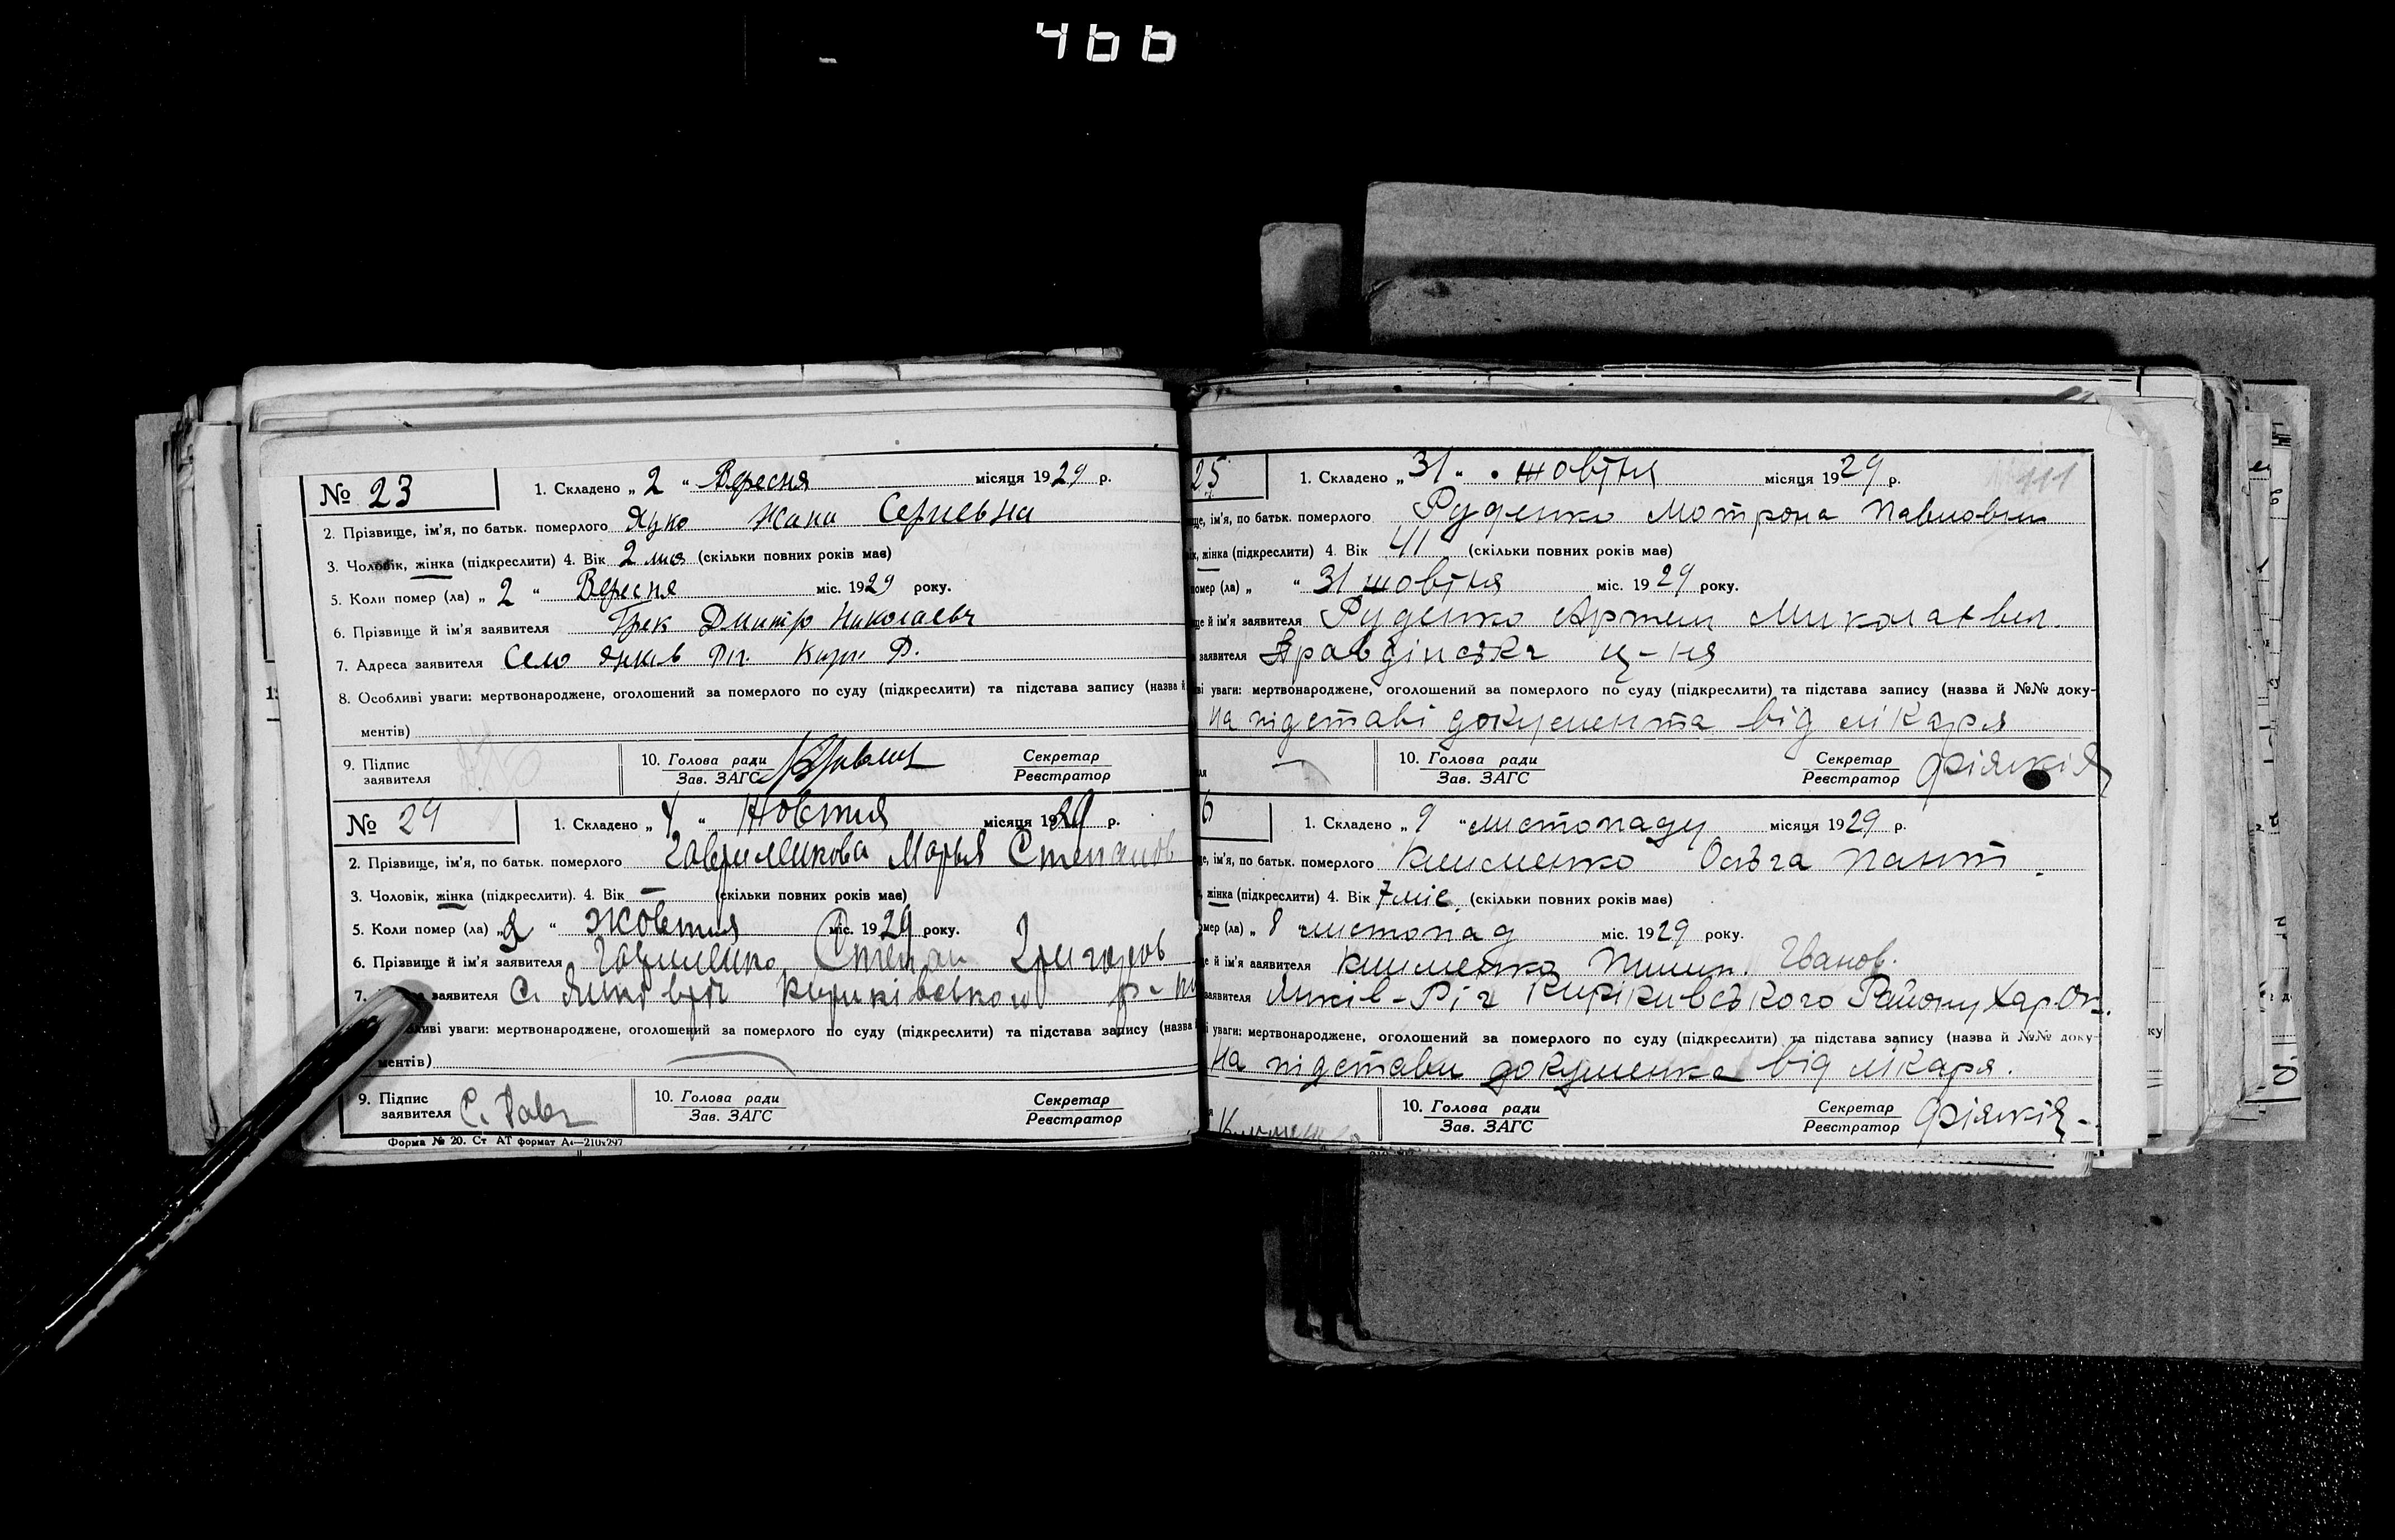 466
№ 23
1. Складено „ 2 “ Вересня місяця 1929 р.
2. Прізвище, ім'я, по батьк. померлого Яцко Сергиевна
3. Чоловік, жінка (підкреслити) 4. Вік 2 (скільки повних років має)
5. Коли помер (ла) „ 2 “ Вересня міс. 1929 року.
6. Прізвище й ім'я заявителя Грек Дмитро Николаевч
7. Адреса заявителя Село Янків Ріг. Р.
8. Особливі уваги: мертвонароджене, оголошений за померлого по суду (підкреслити) та підстава запису (назва й
ментів)
9. Підпис заявителя
10. Голова ради Зав. ЗАГС
Секретар Реєстратор
№ 24
1. Складено „ 4 “ Жовтня місяця 1929 р.
2. Прізвище, ім'я, по батьк. померлого Марья Степанов
3. Чоловік, жінка (підкреслити). 4. Вік — (скільки повних років має)
5. Коли помер (ла) „ “ Жовтня міс. 1929 року.
6. Прізвище й ім'я заявителя Гавриленко Степан Григоров
7. заявителя С. Янків ріг р-ну
уваги: мертвонароджене, оголошений за померлого по суду (підкреслити) та підстава запису (назва
ментів)
9. Підпис заявителя С. Гавр
10. Голова ради Зав. ЗАГС
Секретар Реєстратор
Форма № 20. Ст АТ формат А4—210x297
25
1. Складено „ 31 “ жовтня місяця 1929 р.
ім'я, по батьк. померлого Руденко Мотрона Павловна
жінка (підкреслити) 4. Вік 41 (скільки повних років має)
помер (ла) „ “ 31 жовтня міс. 1929 року.
й ім'я заявителя Руденко Артем Миколаевич.
заявителя Правдінська
уваги: мертвонароджене, оголошений за померлого по суду (підкреслити) та підстава запису (назва й №№ доку-
на підставі документа від лікаря
10. Голова ради Зав. ЗАГС
Секретар Реєстратор
6
1. Складено „ 9 “ листопаду місяця 1929 р.
ім'я, по батьк. померлого Клименко Ольга Пант.
жінка (підкреслити) 4. Вік 7 міс. (скільки повних років має)
помер (ла) „ 8 “ листопад міс. 1929 року.
й ім'я заявителя Клименко Іванов.
заявителя Янків-Ріг Району Хар. Ок.
уваги: мертвонароджене, оголошений за померлого по суду (підкреслити) та підстава запису (назва й №№ доку-
на підстави документа від лікаря.
10. Голова ради Зав. ЗАГС
Секретар Реєстратор